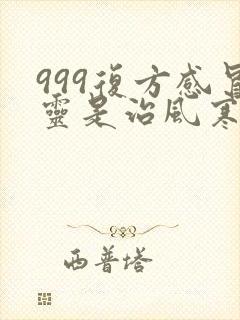 999復方感冒
靈是治風寒
西普塔